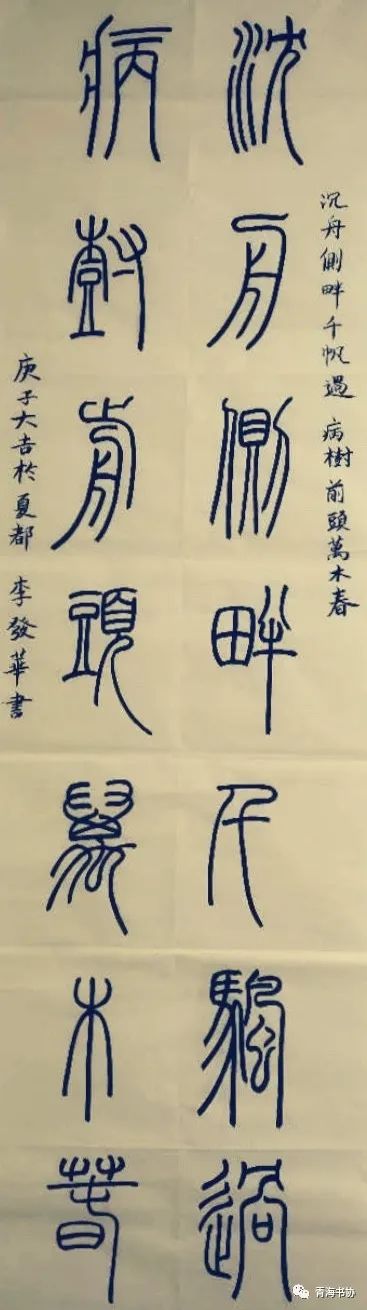 沉舟側畔千帆過 病樹前頭萬木春
沈舟側畔千颿過
病樹前頭萬木春
庚子大吉於夏都 李發華書
青海书协